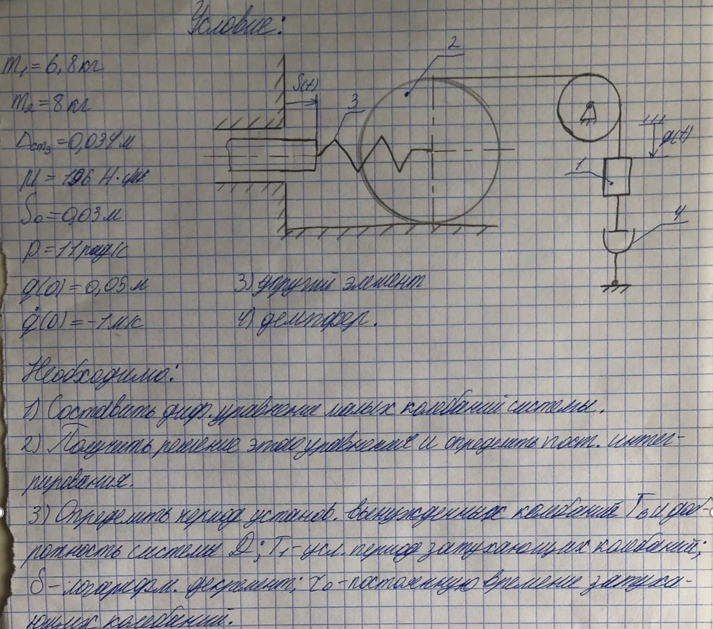 Условие:
m₁ = 6,8 кг
m₂ = 8 кг
Dст₃ = 0,034 м
μ = 196 Н·с/м
S₀ = 0,03 м
p = 11 рад/с
q(0) = 0,05 м
q̇(0) = -1 м/с
S(t)
2
3
1
q(t)
4
3) упругий элемент
4) демпфер.
Необходимо:
1) Составить диф. уравнение малых колебаний системы.
2) Получить решение этого уравнения и определить пост. интег-
рирования.
3) Определить период установ. вынужденных колебаний Tв и доб-
ротность системы D; T₁ - усл. период затухающих колебаний;
δ - логарифм. декремент; τ₀ - постоянную времени затуха-
ющих колебаний.